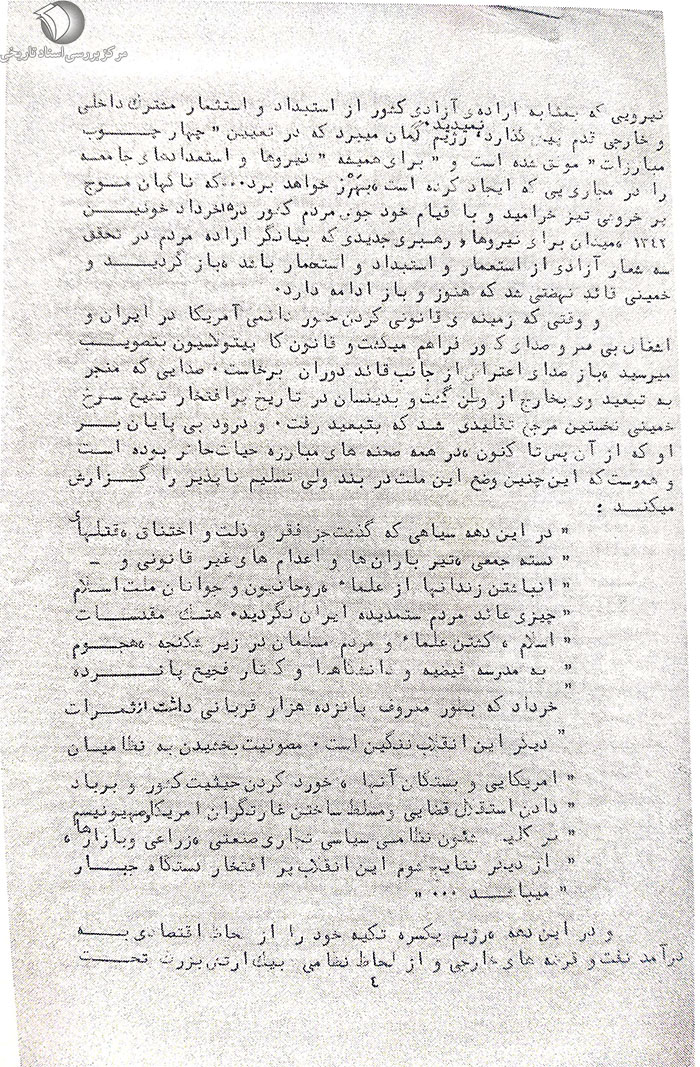 مرکز بررسی اسناد تاریخی
نیرویی که بمثابه اراده‌ی آزادی کشور از استبداد و استثمار مشترك داخلی
و خارجی قدم پیش گذارد، نمیدید. رژیم گمان میبرد که در تعیین " چهار چـــوب
مبارزات " موفق شده است و " برای همیشه " نیروها و استعدادهای جامعه
را در مجاری یی که ایجاد کرده است بهرز خواهد برد... که ناگهان مـوج
پر خروشی تیز خرامید و با قیام خود جوش مردم کشور در ۱۵خرداد خونیـن
۱۳٤۲ میدان برای نیروها و رهبری جدیدی که بیانگر اراده مردم در تحقق
سه شعار آزادی از استعمار و استبداد و استحمار باشد ، باز گردیــد و
خمینی قائد نهضتی شد که هنوز و باز ادامه دارد.
و وقتی که زمینه ی قانونی کردن حضور دائمی آمریکا در ایران و
اشغال بی سر و صدای کشور فراهم میگشت و قانون کا پیتولاسیون بتصویـت
میرسید ، باز صدای اعتراض از جانب قائد دوران برخاست . صدایی که منجر
به تبعید وی بخارج از وطن گشت و بدینسان در تاریخ پر افتخار تشیع سـرخ
خمینی نخستین مرجع تقلیدی شد که بتبعید رفت . و درود بی پایان بـر
او که از آن پس تا کنون ، در همه صحنه های مبارزه حیات حاضر بوده است
و هموست که این چنین وضع این ملت در بند ولی تسلیم نا پذیر را گـــزارش
میکنــد :
" در این دهه سیاهی که گذشت جز فقر و ذلت و اختناق ، قتلهای
" دسته جمعی ، تیر باران ها و اعدام های غیر قانونی و ـ
" انباشتن زندانها از علماء ، روحانیون و جوانان ملت اسلام
" چیزی عائد مردم ستمدیده ایران نگردید. هتـك مقدسـات
" اسلام ، کشتن علماء و مردم مسلمان در زیر شکنجه ، هجـوم
" به مدرسه فیضیه و دانشگاهها و کشتار فجیع پانـــزده
" خرداد که بطور معروف پانزده هزار قربانی داشت از ثمرات
" دیگر این انقلاب ننگین است . مصونیت بخشیدن به نظامیان
" امریکایی و بستگان آنها ، خورد کردن حیثیت کشور و برباد
" دادن استقلال قضایی و مسلط ساختن غارتگران امریکا و صهیونیسم
" بر کلیه شئون نظامی سیاسی تجاری صنعتی ، زراعی و بازارها ،
" از دیگر نتایج شوم این انقلاب پر افتخار دستگاه جبــار
" میباشــد ... "
و در این دهه ، رژیم یکسره تکیه خود را از لحاظ اقتصادی بــه
درآمد نفت و قرضه های خارجی و از لحاظ نظامی بیك ارتش بزرگ تحــت
٤